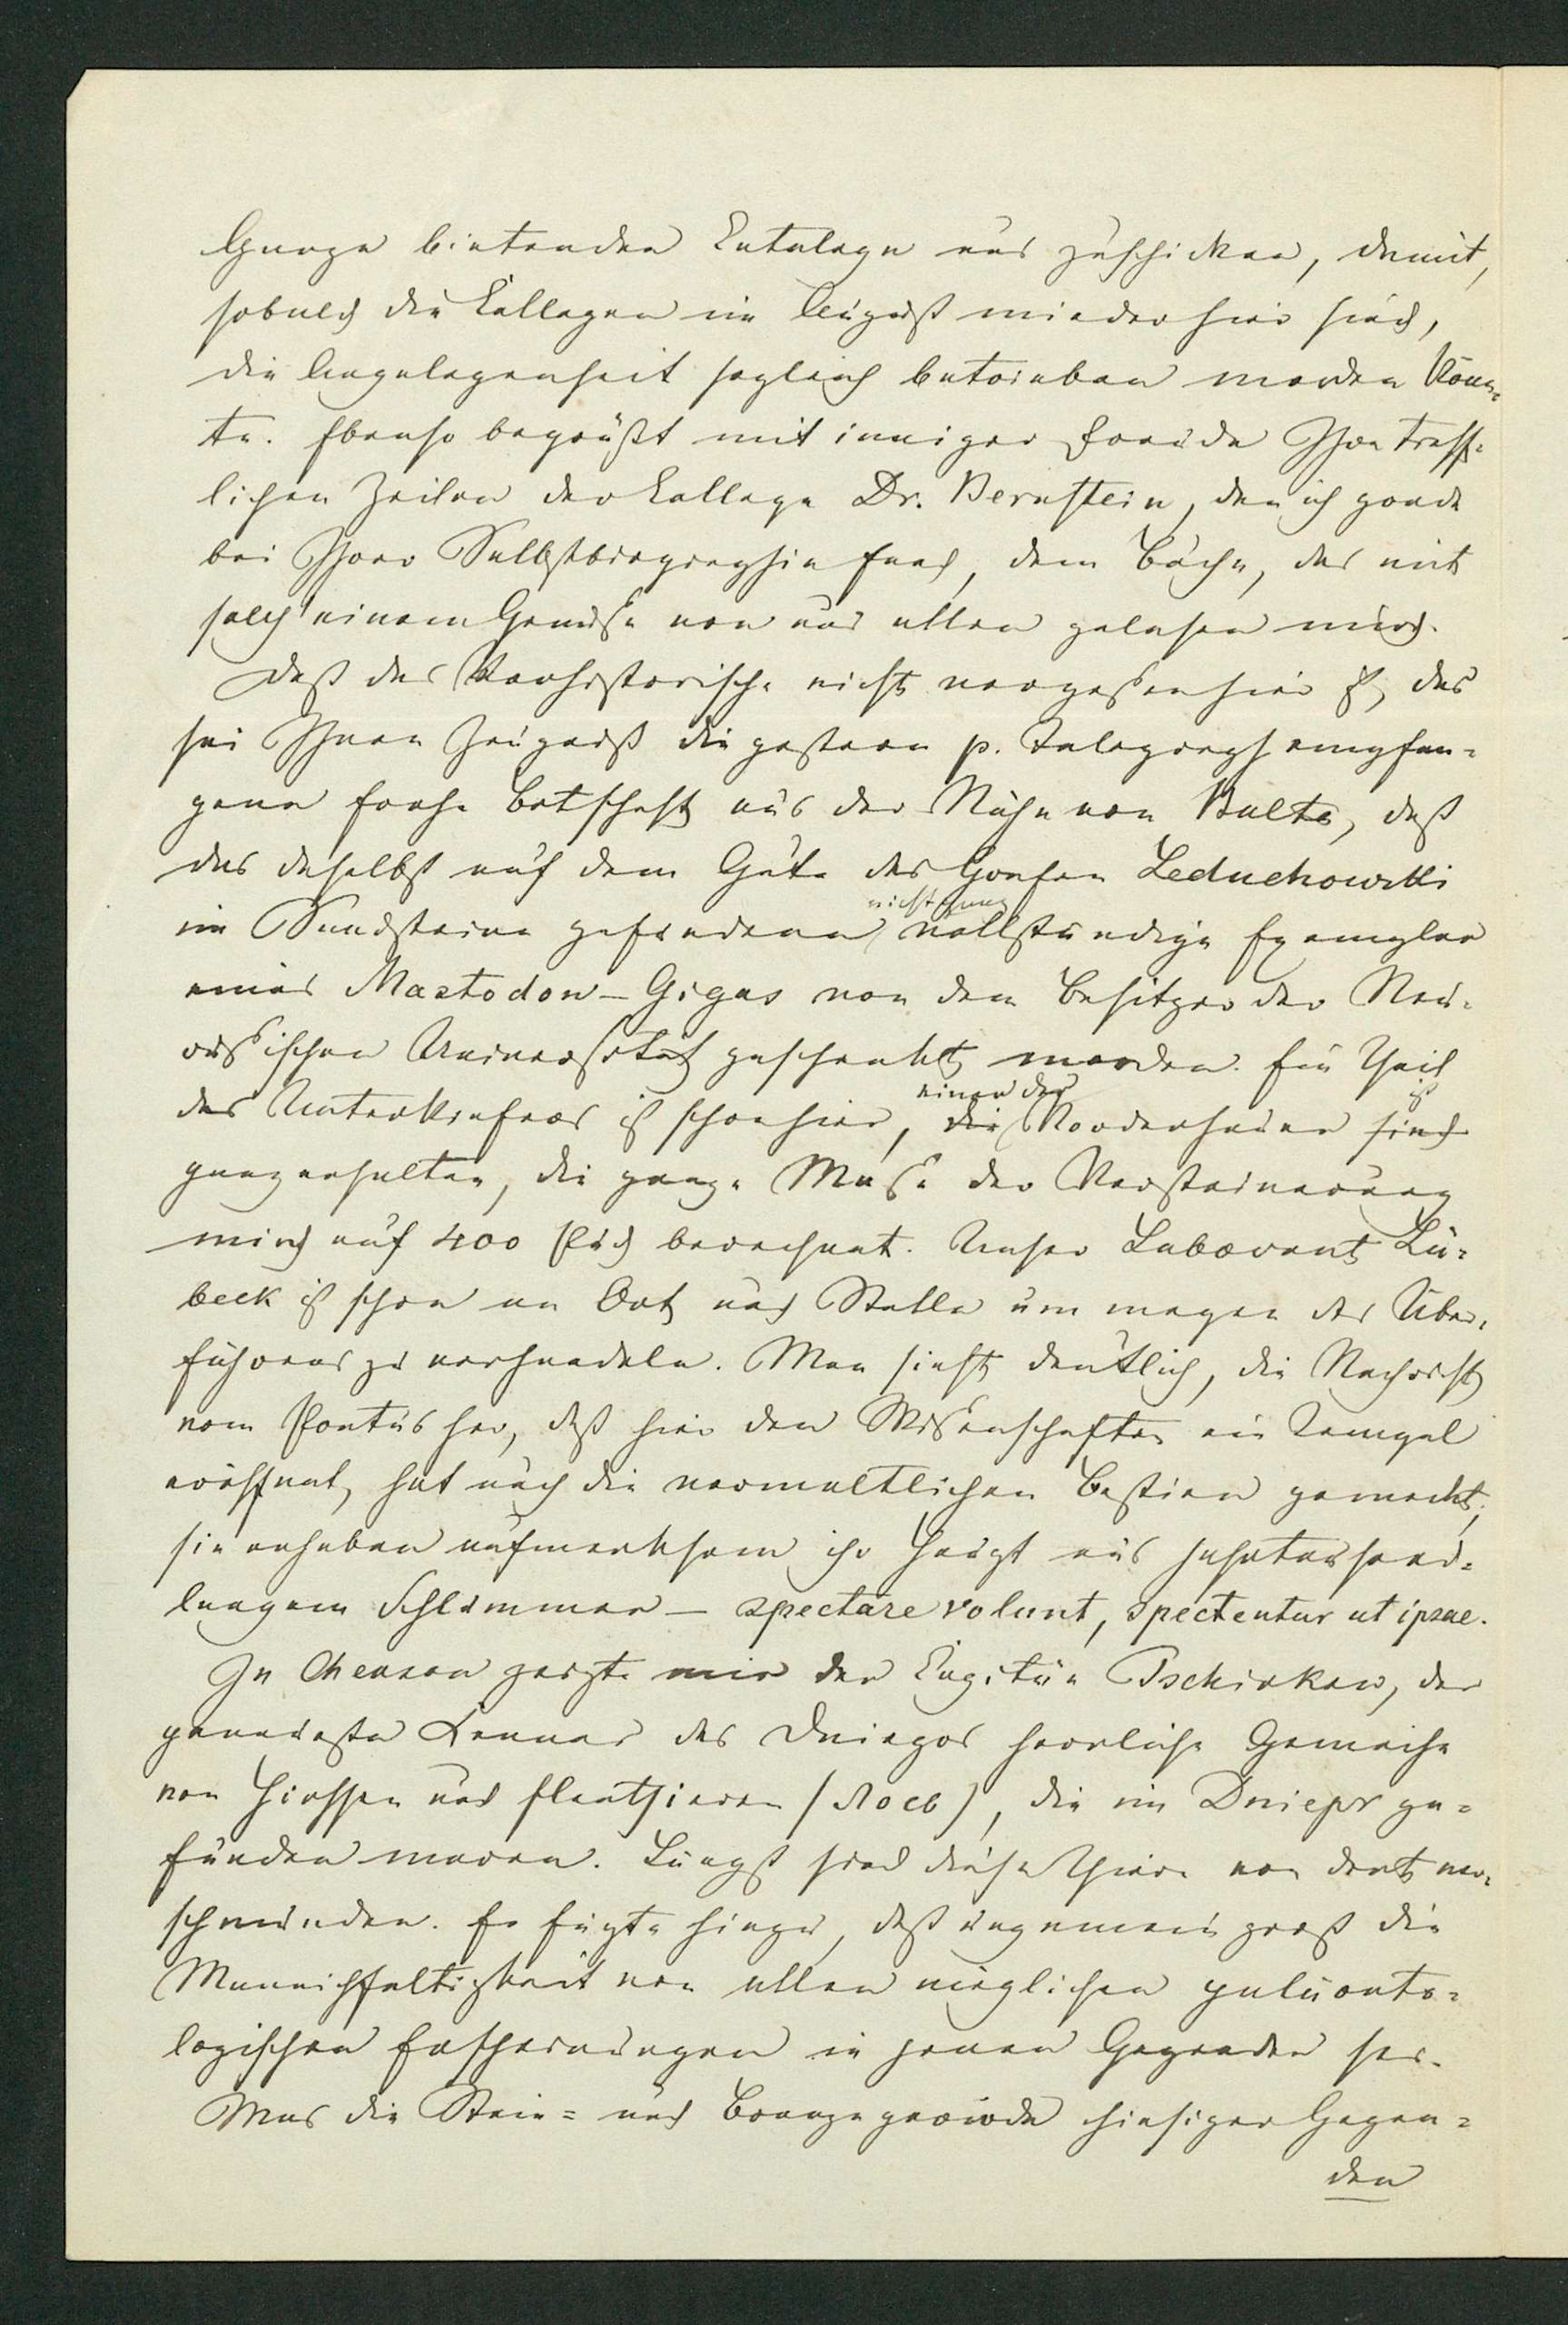 Ganze bietenden Cataloge uns zuschicken, damit,
sobald die Collegen im August wieder hier sind,
die Angelegenheit sogleich betrieben werden könn-
te. Ebenso begrüßt mit inniger Freude Ihre treff-
lichen Zeilen der College Dr. Bernstein, den ich grade
bei Ihrer Selbstbiographie fand, dem Buche, das mit
solch' einem Genuße von uns allen gelesen wird.
Daß das Vorhistorische nicht vergeßen hier ist, das
sei Ihnen Zeugniß die gestern p. Telegraph empfan-
gene frohe Botschaft aus der Nähe von Balta, daß
das daselbst auf dem Gute des Grafen Leduchowski
im Sandsteine gefundene nicht ganz vollständige Exemplar
eines Mastodon-Gigas von dem Besitzer der Neu-
rußischen Universität geschenkt worden. Ein Theil
des Unterkiefers ist schon hier, die einer der Vorderhauer sind ist
ganz erhalten, die ganze Maße der Versteinerung
wird auf 400 Pud berechnet. Unser Laborant Lü-
beck ist schon an Ort und Stelle um wegen des Über-
führens zu verhandeln. Man sieht deutlich, die Nachricht
vom Pontus her, daß hier den Wißenschaften ein Tempel
eröffnet, hat auch die vorweltlichen Bestien geweckt;
sie erheben aufmerksam ihr Haupt aus
langem Schlummer – spectare volunt, spectentur ut ipsae.
In zeigte mir der Capitän Pschirkow, der
genaueste Kenner des Dniepr herrliche Geweihe
von Hirschen und Elenthieren (Лось), die im Dniepr ge-
funden waren. Längst sind diese Thiere von dort ver-
schwunden. Er fügte hinzu, daß ungemein groß die
Mannichfaltigkeit von allen möglichen paläonto-
logischen Erscheinungen in jenen Gegenden sei.
Was die Stein- und Bronzeperiode hiesiger Gegen-
den